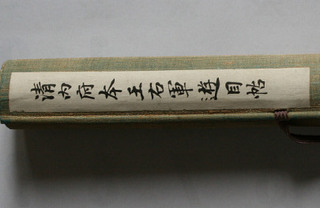 清內府本王右軍遊目帖